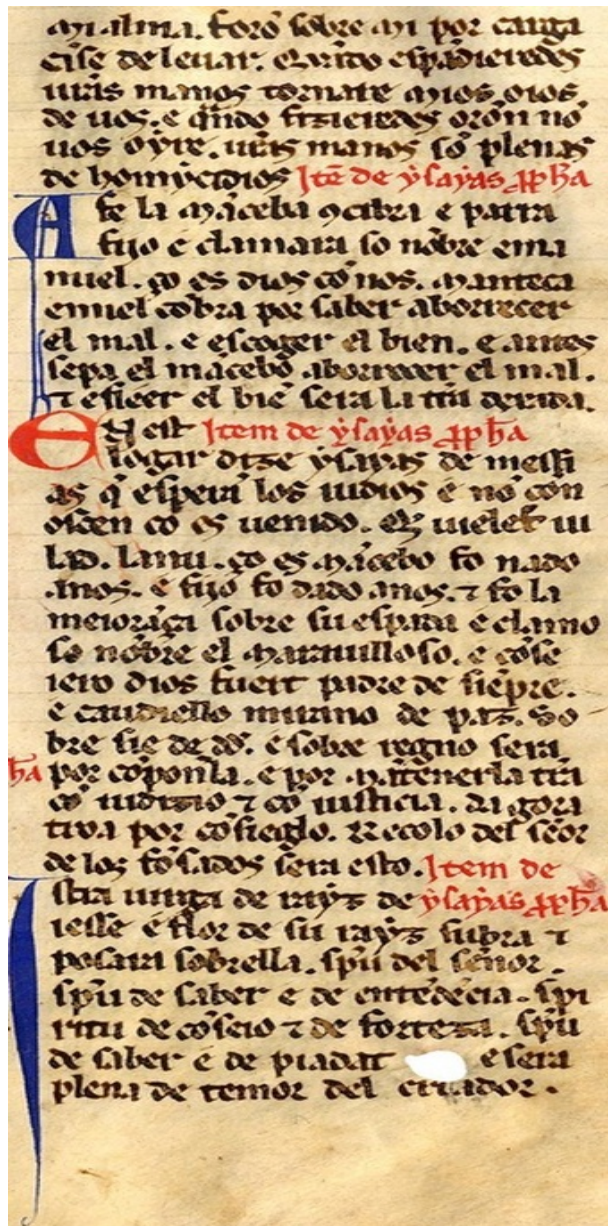 mi alma. foro sobre mi por carga
cise de leuar. Quãdo espãdieredes
uras manos tornare mios oios
de uos. e quãdo fizieredes oron no
uos oyre. uras manos so plenas
de homycidios Ite de ysayas ppha
Afe la mãceba ɔcibra e parra
fijo e clamara so nõbre ema
nuel. ço es dios cõ nos. manteca
e miel cõbra por saber aborrecer
el mal. e escoger el bien. e antes
sepa el mãcebo aborrecer el mal.
⁊ esleer el bie sera la tira
En est Item de ysayas ppha
logar dize ysayas de messi
as q espera los iudios e no con
oscen co es uenido. uielet iu
lad. lanu. ço es mãcebo fo nado
anos. e fijo fo dado anos. ⁊ fo la
meiorãça sobre su espada e clamo
so nõbre el marauilloso. e cõse
iero dios fuert padre de siepre.
e caudiello de paz. So
bre sie de dd. e sobre regno sera
por cõponla. e por mãtenerla tira
cõ iudizio ⁊ cõ iusticia. dagora
tiva por cõsieglo. Recolo del senor
de los fõsados sera esto. Item de
Istra uirga de rayz de ysayas ppha
iesse e flor de su rayz subra ⁊
posara sobrella. spu del señor.
spu de saber e de entedecia. spi
ritu de cõseio ⁊ de forteza. spu
de saber e de piadat e sera
plena de temor del criador.
ha